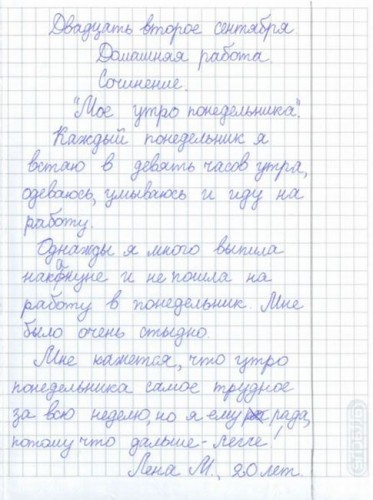 Двадцать второе сентября
Домашняя работа.
Сочинение.
"Мое утро понедельника".
Каждый понедельник я
встаю в девять часов утра,
одеваюсь, умываюсь и иду на
работу.
Однажды я много выпила
накануне и не пошла на
работу в понедельник. Мне
было очень стыдно.
Мне кажется, что утро
понедельника самое трудное
за всю неделю, но я ему рада,
потому что дальше - легче!
Лена М., 20 лет.